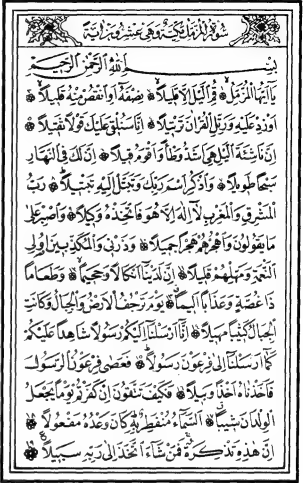 سُورَةُ الْمُزَّمِّلِ مَكِّيَّةٌ وَهِيَ عِشْرُونَ آيَةً
بِسْمِ اللهِ الرَّحْمٰنِ الرَّحِيمِ
يَا أَيُّهَا الْمُزَّمِّلُ ۝ قُمِ اللَّيْلَ إِلَّا قَلِيلًا ۝ نِصْفَهُ أَوِ انْقُصْ مِنْهُ قَلِيلًا ۝
أَوْ زِدْ عَلَيْهِ وَرَتِّلِ الْقُرْآنَ تَرْتِيلًا ۝ إِنَّا سَنُلْقِي عَلَيْكَ قَوْلًا ثَقِيلًا ۝
إِنَّ نَاشِئَةَ اللَّيْلِ هِيَ أَشَدُّ وَطْأً وَأَقْوَمُ قِيلًا ۝ إِنَّ لَكَ فِي النَّهَارِ
سَبْحًا طَوِيلًا ۝ وَاذْكُرِ اسْمَ رَبِّكَ وَتَبَتَّلْ إِلَيْهِ تَبْتِيلًا ۝ رَبُّ
الْمَشْرِقِ وَالْمَغْرِبِ لَا إِلٰهَ إِلَّا هُوَ فَاتَّخِذْهُ وَكِيلًا ۝ وَاصْبِرْ عَلَى
مَا يَقُولُونَ وَاهْجُرْهُمْ هَجْرًا جَمِيلًا ۝ وَذَرْنِي وَالْمُكَذِّبِينَ أُولِي
النَّعْمَةِ وَمَهِّلْهُمْ قَلِيلًا ۝ إِنَّ لَدَيْنَا أَنْكَالًا وَجَحِيمًا ۝ وَطَعَامًا
ذَا غُصَّةٍ وَعَذَابًا أَلِيمًا ۝ يَوْمَ تَرْجُفُ الْأَرْضُ وَالْجِبَالُ وَكَانَتِ
الْجِبَالُ كَثِيبًا مَهِيلًا ۝ إِنَّا أَرْسَلْنَا إِلَيْكُمْ رَسُولًا شَاهِدًا عَلَيْكُمْ
كَمَا أَرْسَلْنَا إِلَى فِرْعَوْنَ رَسُولًا ۝ فَعَصَى فِرْعَوْنُ الرَّسُولَ
فَأَخَذْنَاهُ أَخْذًا وَبِيلًا ۝ فَكَيْفَ تَتَّقُونَ إِنْ كَفَرْتُمْ يَوْمًا يَجْعَلُ
الْوِلْدَانَ شِيبًا ۝ السَّمَاءُ مُنْفَطِرٌ بِهِ كَانَ وَعْدُهُ مَفْعُولًا ۝
إِنَّ هٰذِهِ تَذْكِرَةٌ فَمَنْ شَاءَ اتَّخَذَ إِلَى رَبِّهِ سَبِيلًا ۝